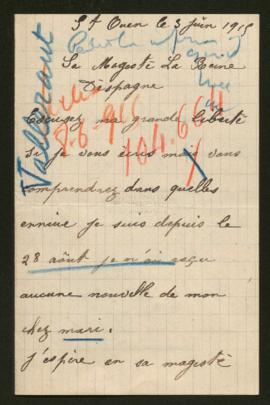 St Ouen le 3 juin 1915
Sa Magesté La Reine
D'espagne
Excusez ma grande liberté
Si je vous écris mais vous
comprendrez dans quelles
ennuie je suis depuis le
28 août je n'ai reçu
aucune nouvelle de mon
cher mari.
j'espère en sa magesté
8-6-915
104.664